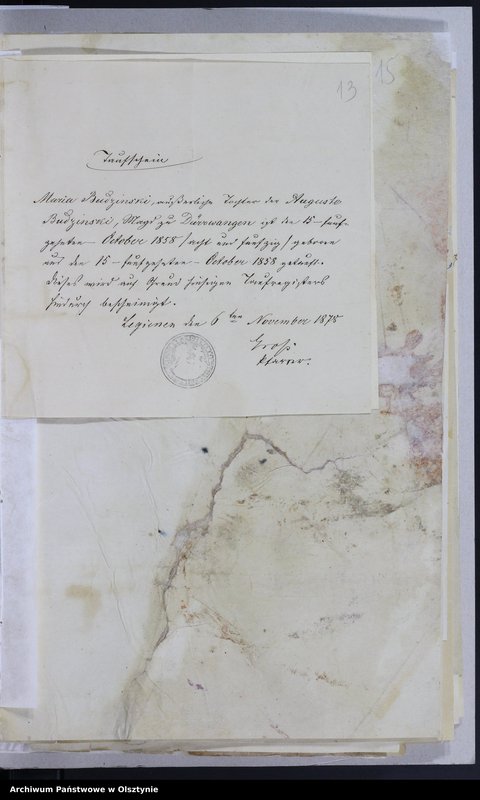 13
15
Taufschein
Maria Budzinski, außerliche Tochter der Auguste
Budzinski, Magd zu Dürrwangen ist den 15 – fünf-
zehnten – October 1858 / acht und fünfzig / geboren
und den 15 – fünfzehnten – October 1858 getauft.
Dieses wird auf Grund hiesigen Taufregisters
hiedurch bescheinigt.
Legienen den 6ten November 1878
Groß
Pfarrer.
Archiwum Państwowe w Olsztynie